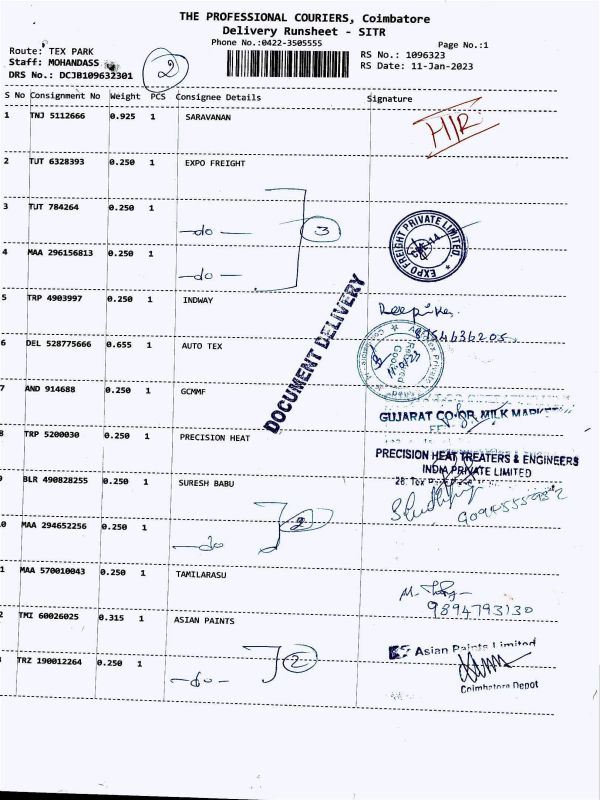 THE PROFESSIONAL COURIERS, Coimbatore
Delivery Runsheet - SITR
Phone No.:0422-3505555
Page No.:1
Route: TEX PARK
RS No.: 1096323
Staff: MOHANDASS
RS Date: 11-Jan-2023
DRS No.: DCJB109632301
2
S No Consignment No Weight PCS Consignee Details Signature
1 TNJ 5112666 0.925 1 SARAVANAN
H/R
2 TUT 6328393 0.250 1 EXPO FREIGHT
3 TUT 784264 0.250 1
—do— 3
EXPO FREIGHT PRIVATE LIMITED
4 MAA 296156813 0.250 1
—do—
5 TRP 4903997 0.250 1 INDWAY
DOCUMENT DELIVERY
6 DEL 528775666 0.655 1 AUTO TEX
7 AND 914688 0.250 1 GCMMF
GUJARAT CO-OP. MILK
8 TRP 5200030 0.250 1 PRECISION HEAT
PRECISION HEAT TREATERS & ENGINEERS
INDIA PRIVATE LIMITED
28, Tex
BLR 490828255 0.250 1 SURESH BABU
0 MAA 294652256 0.250 1
—do 2
1 MAA 570010043 0.250 1 TAMILARASU
9894793130
2 TMI 60026025 0.315 1 ASIAN PAINTS
Asian Paints Limited
TRZ 190012264 0.250 1
—do— 2
Coimbatore Depot